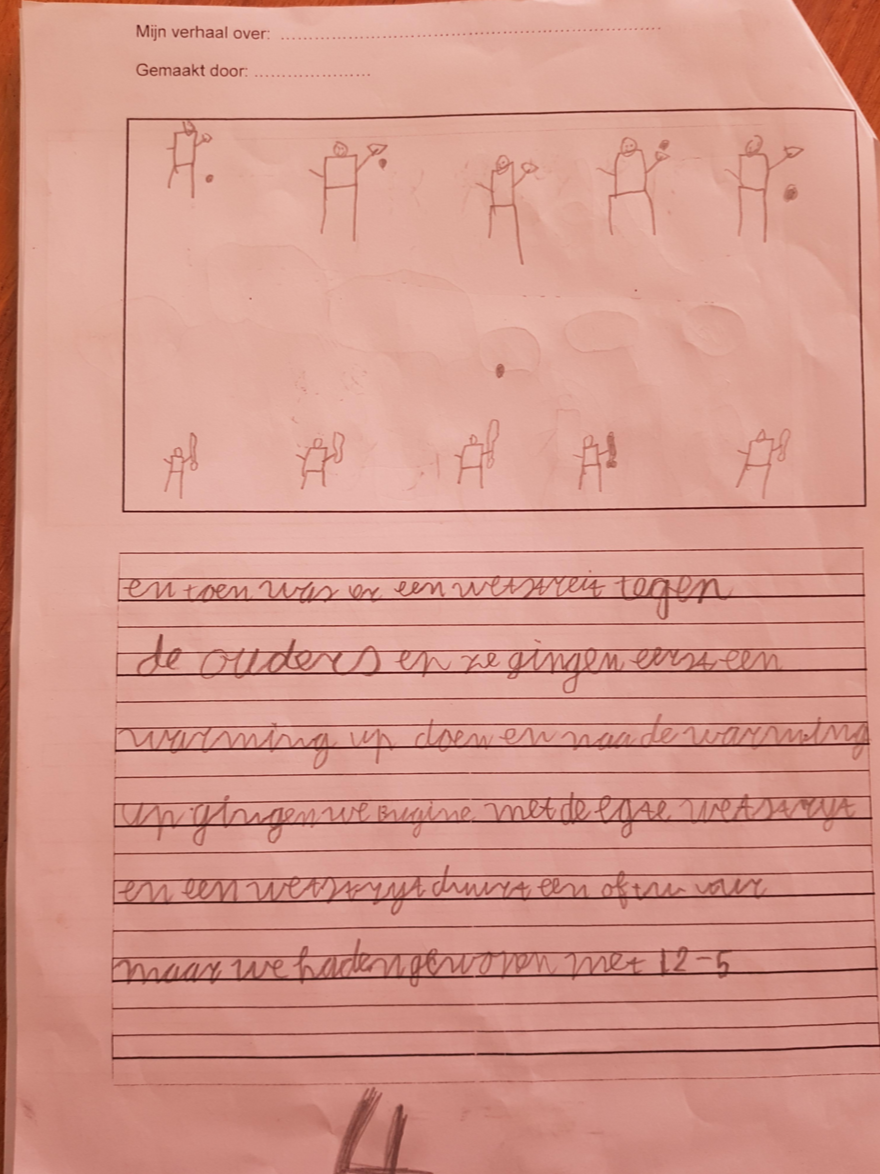 Mijn verhaal over: ..........
Gemaakt door: ..........
en toen was er een wetstreit tegen
de ouders en ze gingen eerst een
warming up doen en naa de warming
up gingen we begine met de egte wetstryt
en een wetstryt duurt een of tw uur
maar we hadden gewonen met 12-5
4